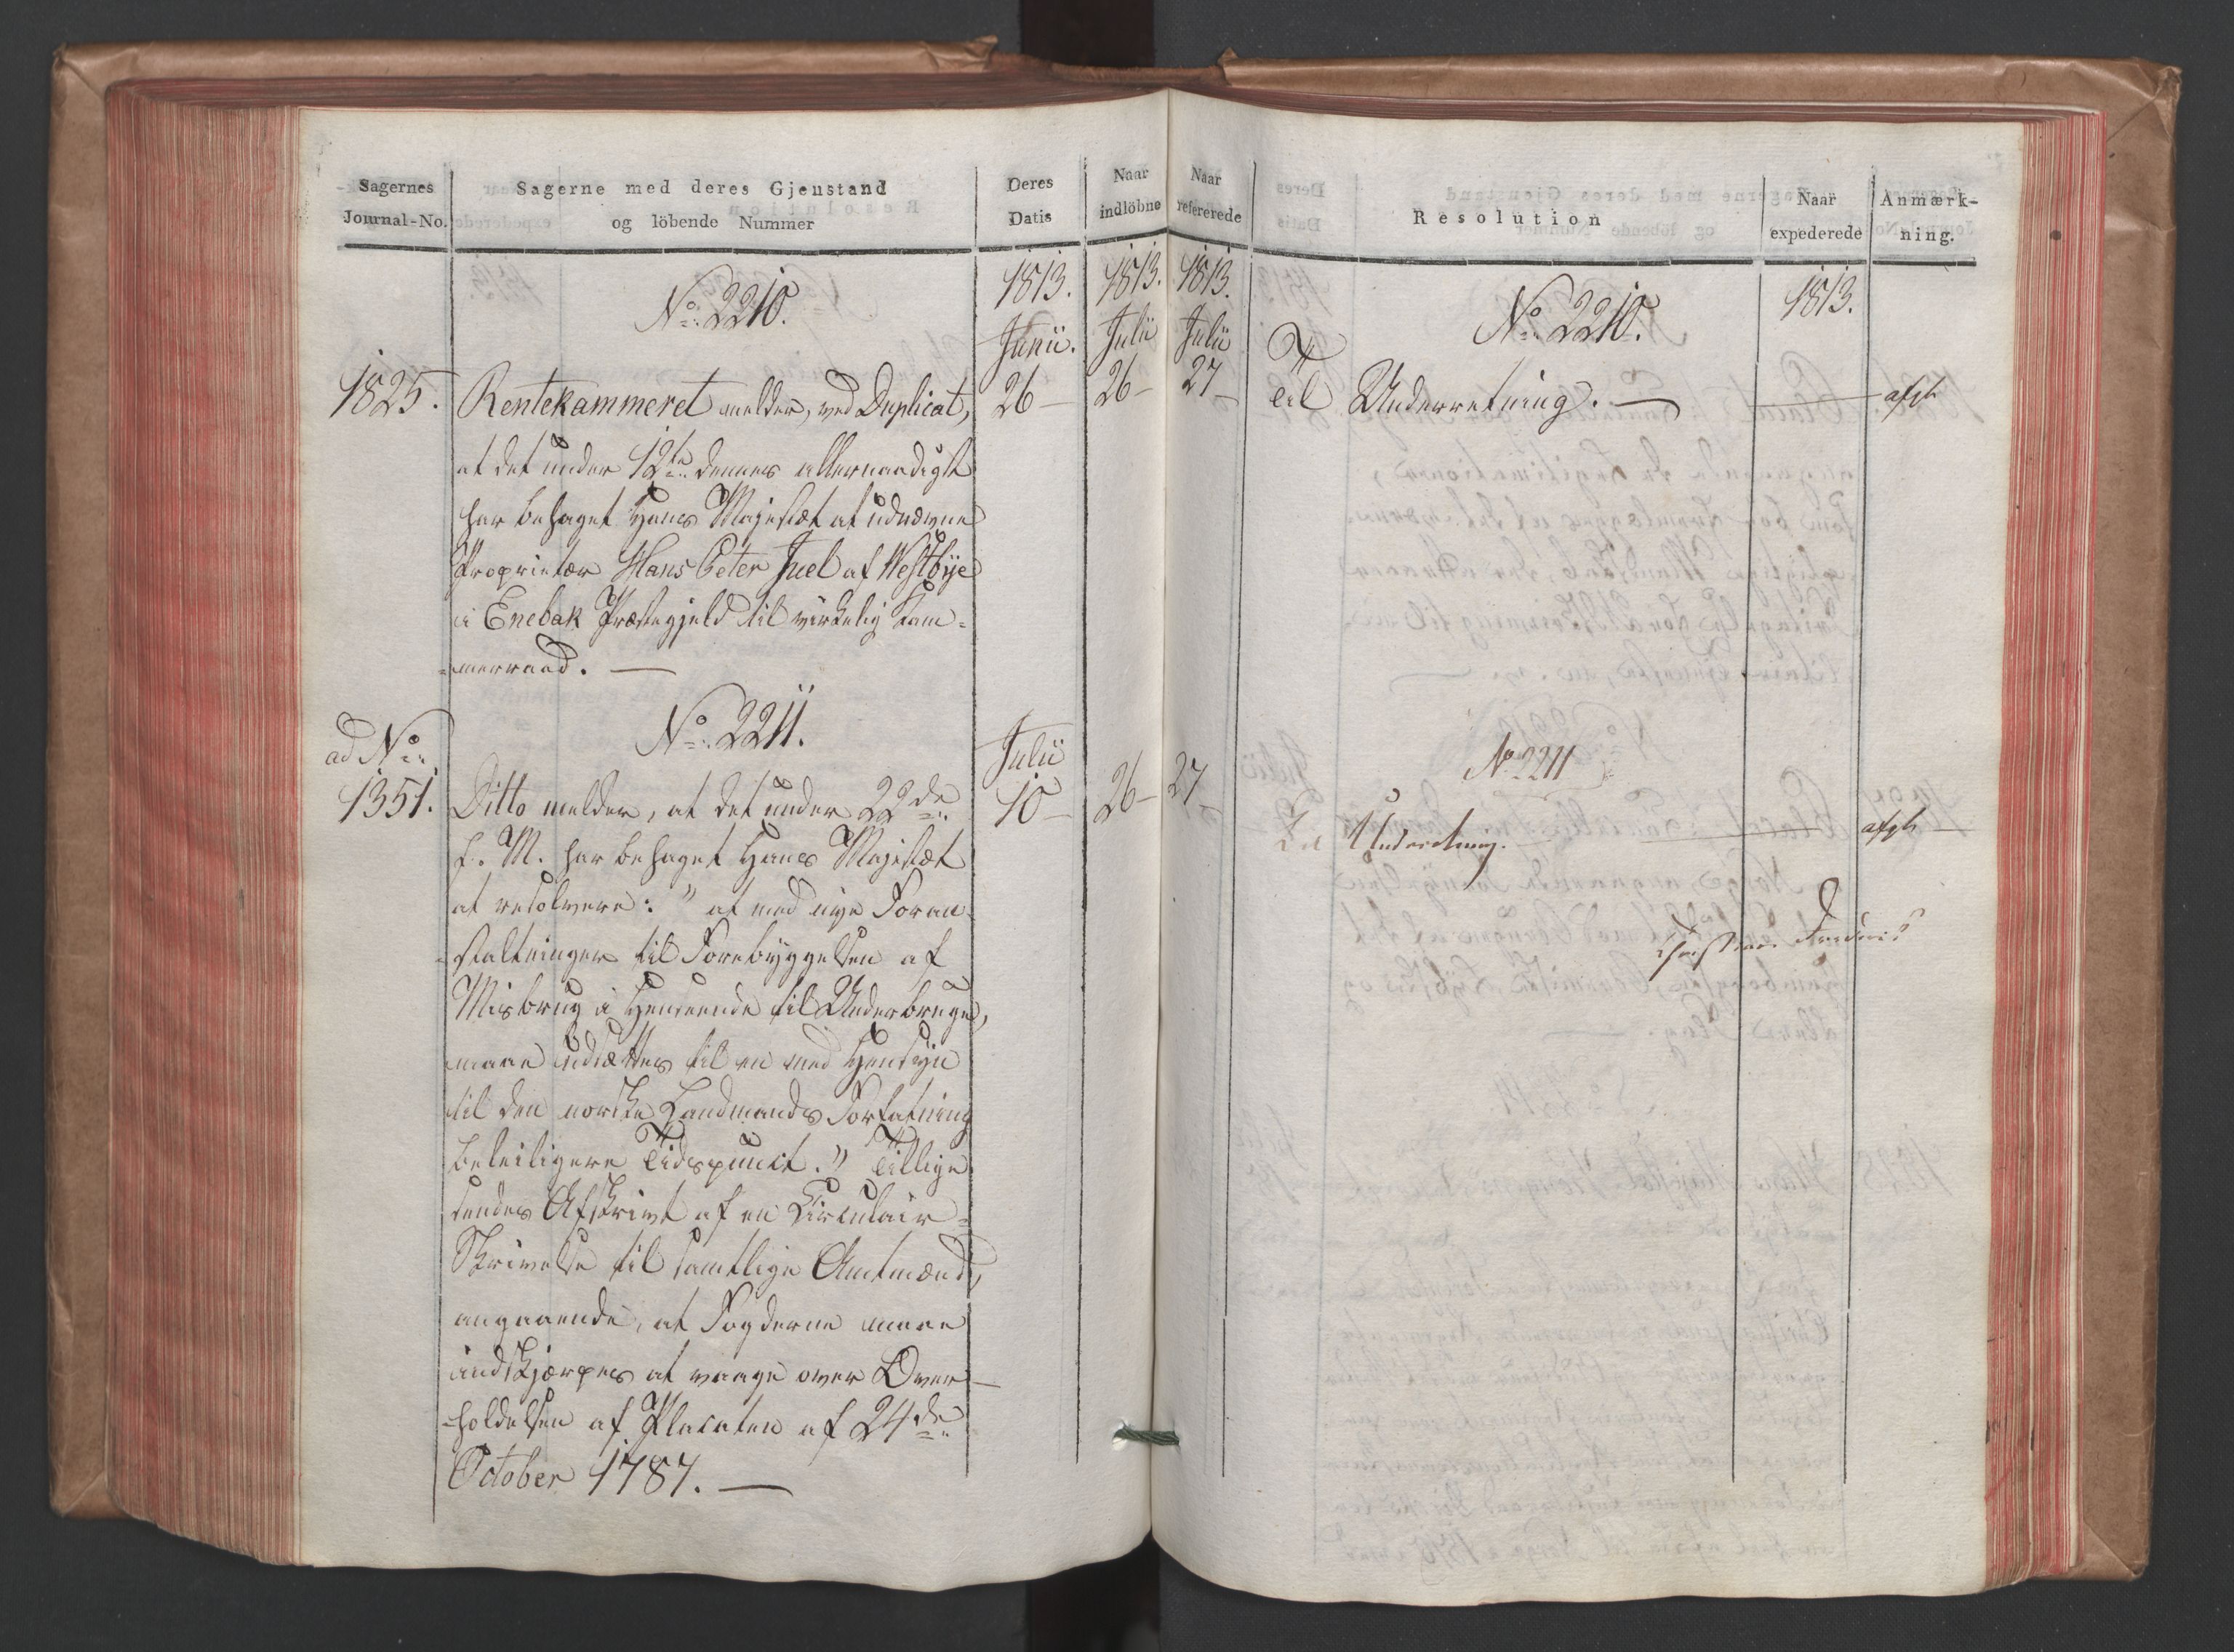 Sagernes
Journal-No.
Sagerne med deres Gjenstand
og löbende Nummer
Deres
Datis
Naar
indlöbne
No: 2210.
1813.
1813.
Junii.
Julii
1825.
Rentekammeret melder, ved Duplicat,
26 —
26 —
at det under 12te dennes allernaadigst
har behaget Hans Majestæt at udnævne
Proprietær Hans Peter Juel af Westbye
i Enebak Præstegjeld til virkelig Kam-
-merraad. —
ad No:
No: 2211.
Julii
1351.
Ditto melder, at det under 22de
10 —
26 —
f. M. har behaget Hans Majestæt
at resolvere: "at med nye Foran-
-staltninger til Forebyggelsen af
Misbrug i Henseende til Underbruge,
maae udsættes til en med Hensyn
til den norske Landmands Forfatning
beleiligere Tidspunct." Tillige
sendes Afskrivt af en Circulair-
Skrivelse til samtlige Amtmænd,
angaaende, at Fogderne maae
indskjærpes at vaage over Over-
-holdelsen af Placaten af 24de
October 1787. —
Naar
refererede
Resolution
Naar
expederede
Anmærk-
ning.
1813.
No: 2210.
1813.
Julii
27 —
Til Underretning. —
afgh
No 2211
27 —
Til Underretning.
afgh
Christian Frederik